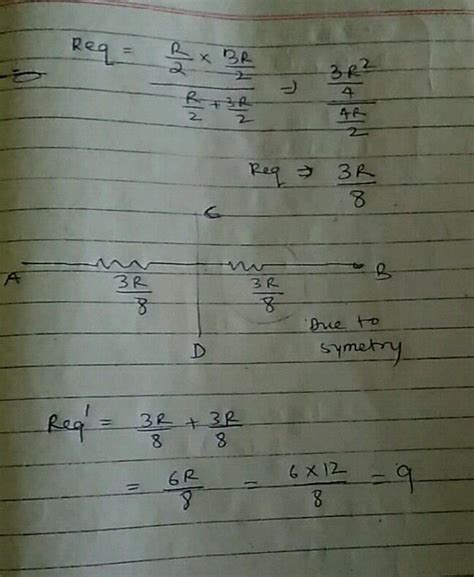 Req = (R/2 × 3R/2) / (R/2 + 3R/2) ⇒ (3R²/4) / (4R/2)
Req ⇒ 3R/8
C
A 3R/8 3R/8 B
D
Due to
symetry
Req' = 3R/8 + 3R/8
= 6R/8 = 6×12/8 = 9